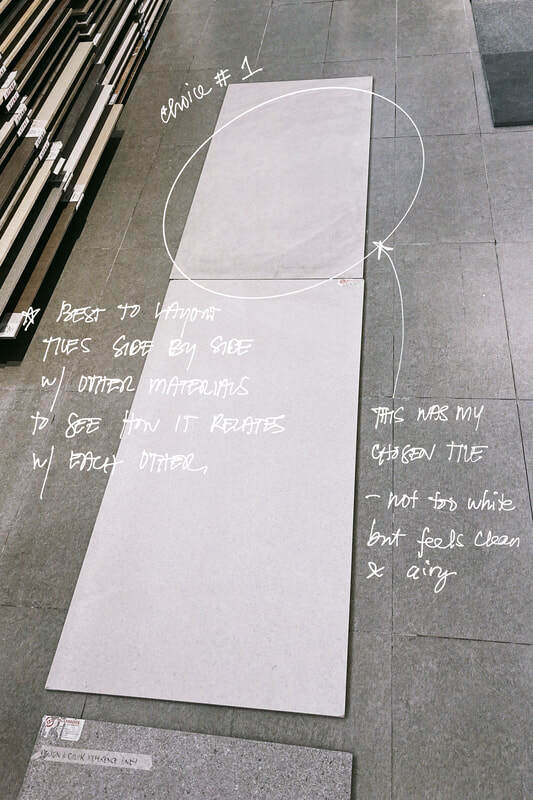 choice # 1
* BEST TO LAYOUT
TILES SIDE BY SIDE
w/ OTHER MATERIALS
TO SEE HOW IT RELATES
w/ EACH OTHER.
THIS WAS MY
CHOSEN TILE
- not too white
but feels clean
& airy
DESIGN & COLOR REFERENCE ONLY